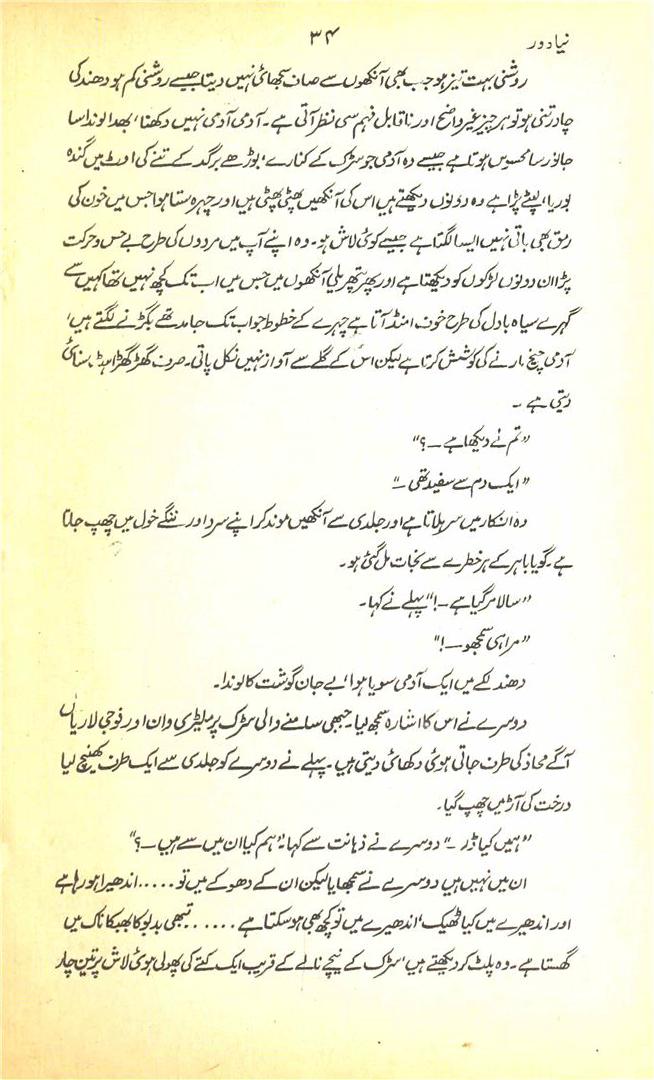 نیا دور
۳۴
روشنی بہت تیز ہو جب بھی آنکھوں سے صاف سجھائی نہیں دیتا جیسے روشنی کم ہو دھند کی
چادر تنی ہو تو ہر چیز غیر واضح اور ناقابل فہم سی نظر آتی ہے۔ آدمی آدمی نہیں دکھتا، بھدا لوندا سا
جانور سا محسوس ہوتا ہے جیسے وہ آدمی جو سڑک کے کنارے، بوڑھے برگد کے تنے کی اوٹ میں گندہ
بوریا، لپٹے پڑا ہے وہ دونوں دیکھتے ہیں اس کی آنکھیں پھٹی پھٹی ہیں اور چہرہ ستا ہوا جس میں خون کی
رمق بھی باقی نہیں ایسا لگتا ہے جیسے کوئی لاش ہو۔ وہ اپنے آپ میں مردوں کی طرح بے حس و حرکت
پڑا ان دونوں لڑکوں کو دیکھتا ہے اور پھر پتھریلی آنکھوں میں جس میں اب تک کچھ نہیں تھا کہیں سے
گہرے سیاہ بادل کی طرح خوف امنڈ آتا ہے چہرے کے خطوط جو اب تک جامد تھے بگڑنے لگتے ہیں،
آدمی چیخ مارنے کی کوشش کرتا ہے لیکن اس کے گلے سے آواز نہیں نکل پاتی۔ صرف گھڑگھڑاہٹ سنائی
دیتی ہے۔
”تم نے دیکھا ہے ــ؟“
”ایک دم سے سفید تھی ــ“
وہ انکار میں سر ہلاتا ہے اور جلدی سے آنکھیں موند کر اپنے سرد اور ننگے خول میں چھپ جاتا
ہے۔ گویا باہر کے ہر خطرے سے نجات مل گئی ہو۔
”سالا مر گیا ہے ــ!“ پہلے نے کہا۔
”مرا ہی سمجھو ــ!“
دھندلکے میں ایک آدمی سویا ہوا، بے جان گوشت کا لوندا۔
دوسرے نے اس کا اشارہ سمجھ لیا۔ جبھی سامنے والی سڑک پر ملیٹری وان اور فوجی لاریاں
آگے محاذ کی طرف جاتی ہوئی دکھائی دیتی ہیں۔ پہلے نے دوسرے کو جلدی سے ایک طرف کھینچ لیا
درخت کی آڑ میں چھپ گیا۔
”ہمیں کیا ڈر ــ“ دوسرے نے ذہانت سے کہا۔ ”ہم کیا ان میں سے ہیں ــ؟“
ان میں نہیں ہیں دوسرے نے سمجھایا لیکن ان کے دھوکے میں تو ..... اندھیرا ہو رہا ہے
اور اندھیرے میں کیا ٹھیک، اندھیرے میں تو کچھ بھی ہو سکتا ہے ...... تبھی بدبو کا بھبکا ناک میں
گھستا ہے۔ وہ پلٹ کر دیکھتے ہیں، سڑک کے نیچے نالے کے قریب ایک کتے کی پھولی ہوئی لاش پر تین چار